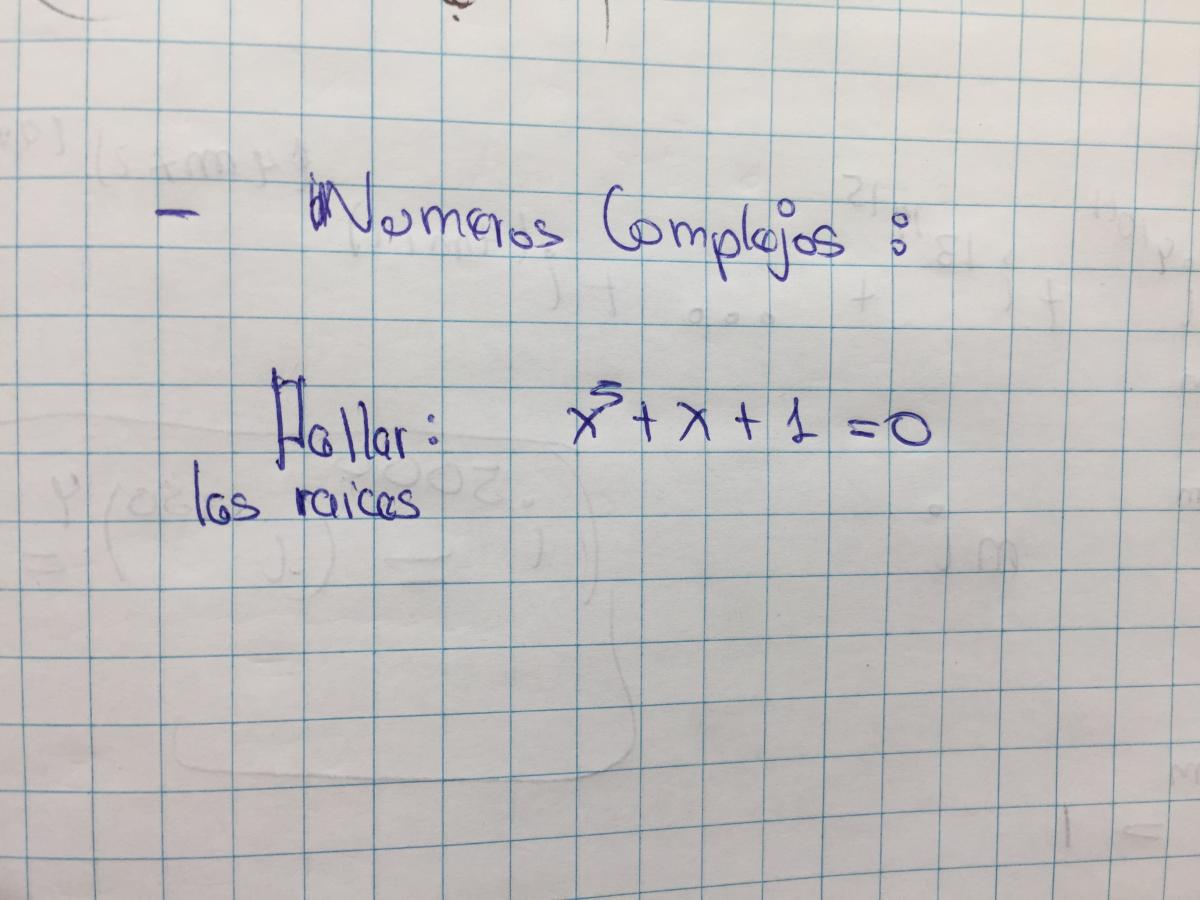 - Numeros Complejos :
Hallar: x⁵ + x + 1 = 0
las raices